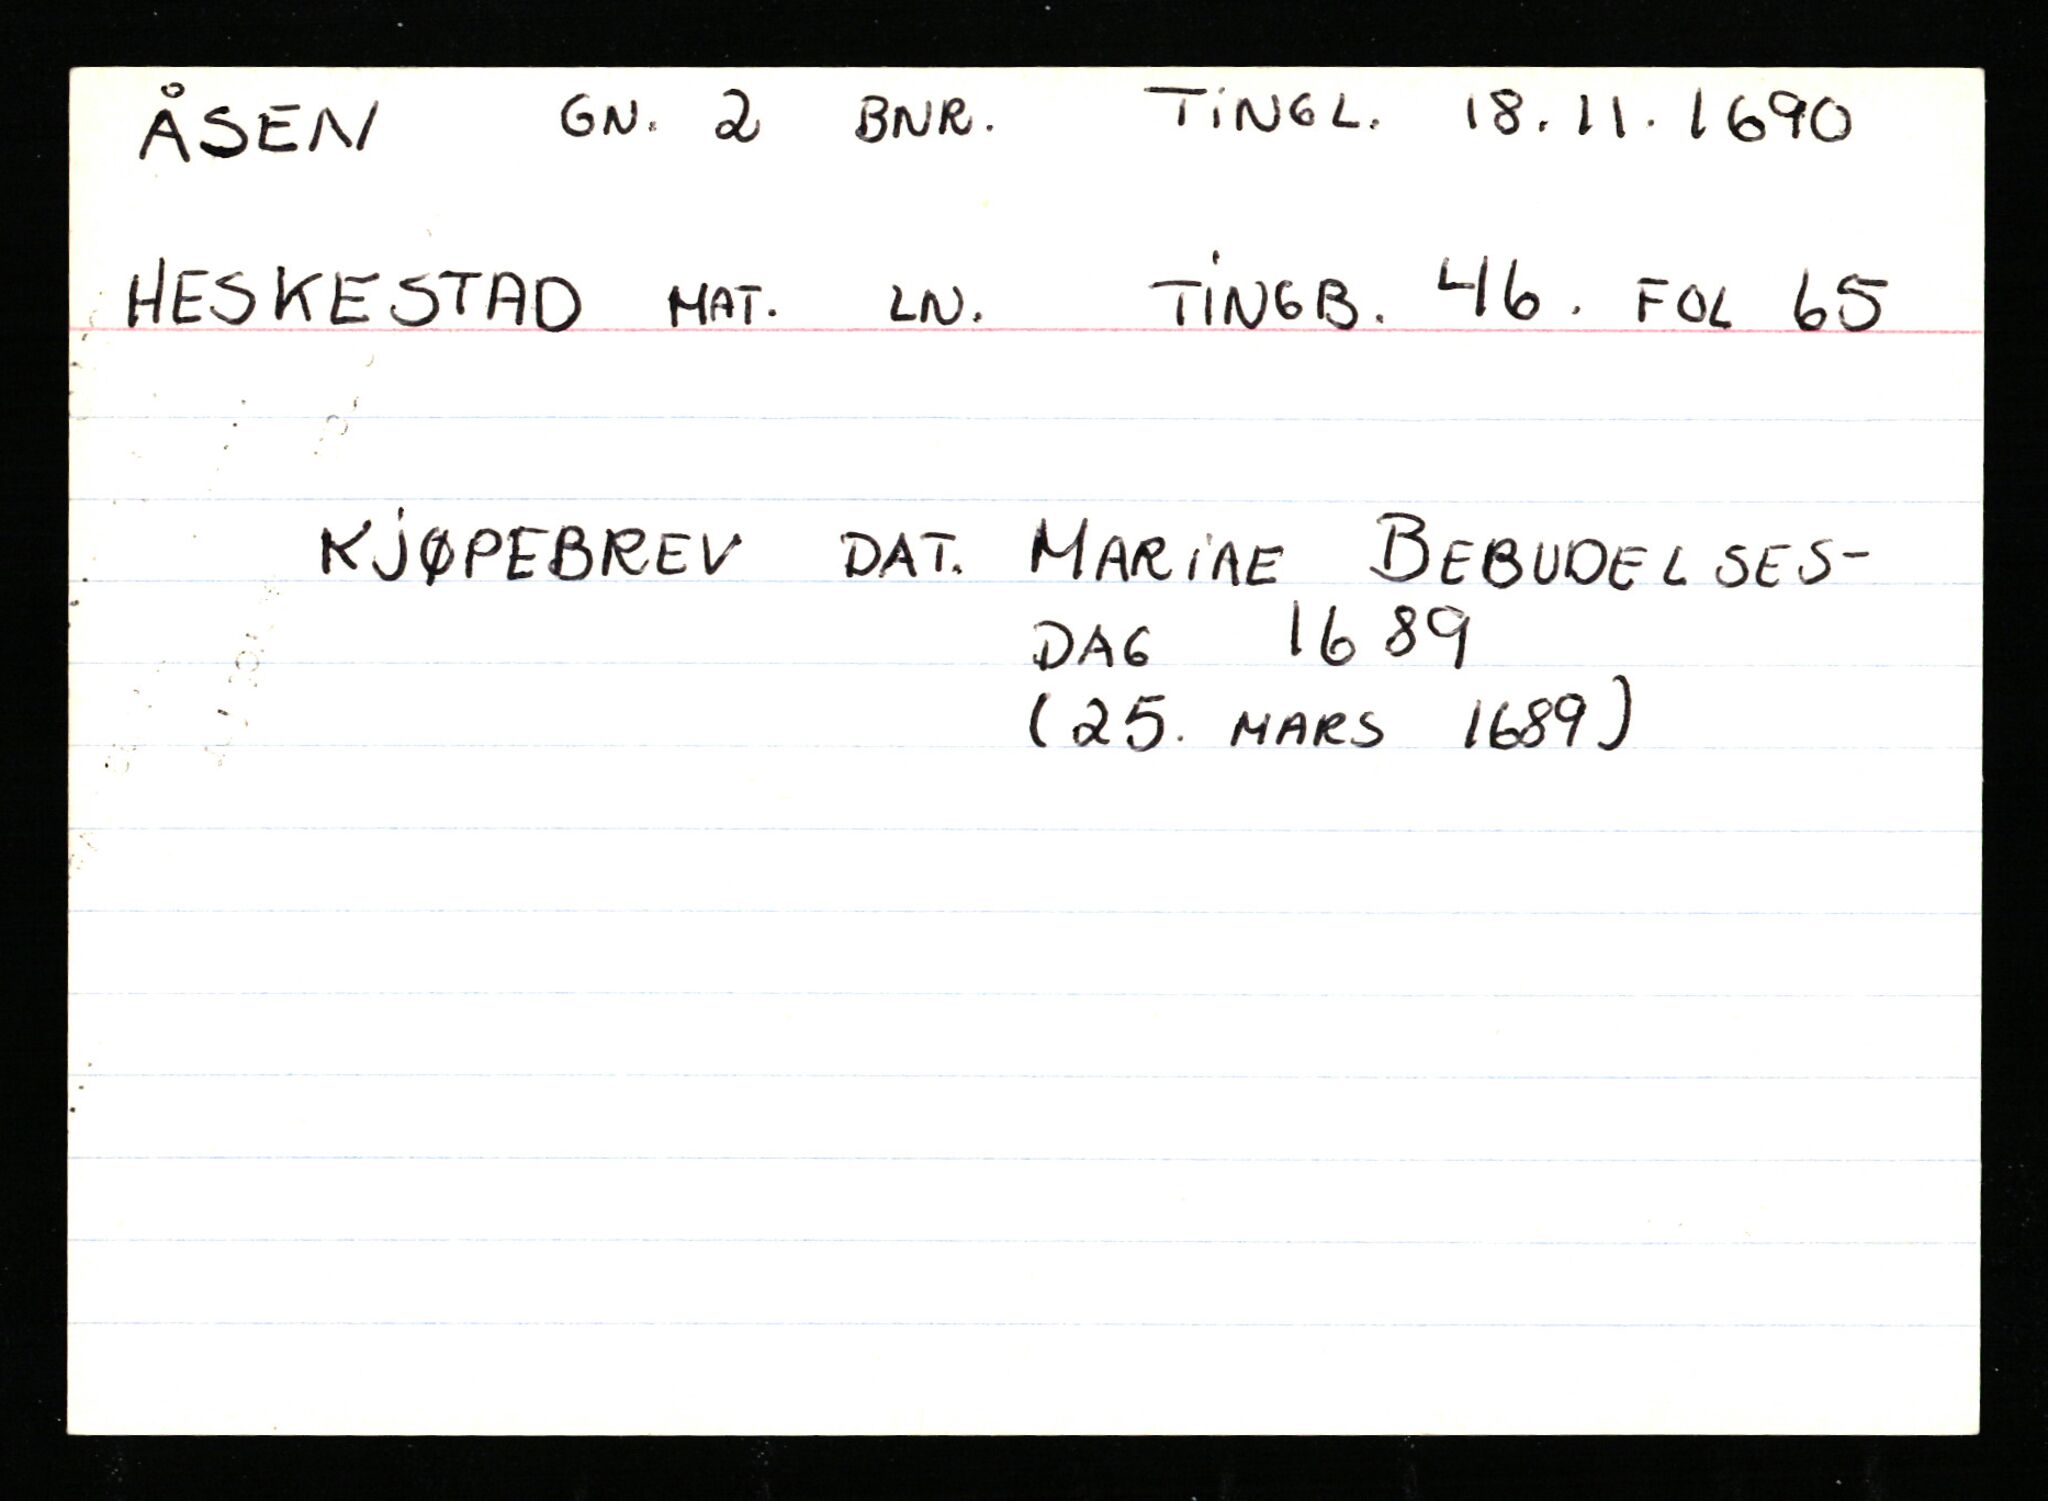 ÅSEN GN. 2 BNR. TINGL. 18.11.1690
HESKESTAD MAT. LN. TINGB. 46. FOL 65
KJØPEBREV DAT. MARIAE BEBUDELSES-
DAG 1689
(25. MARS 1689)